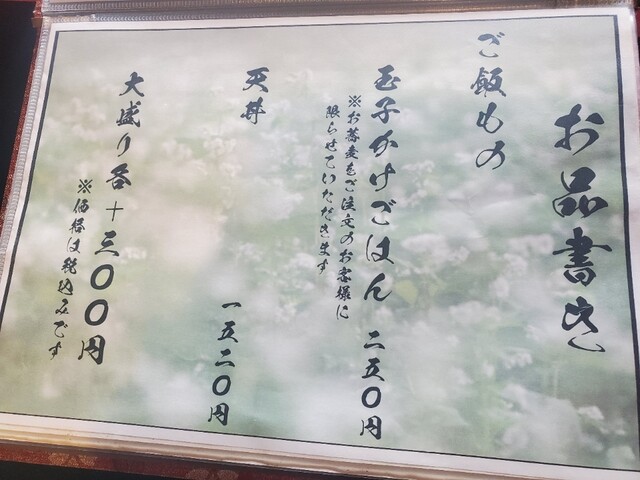 お品書き
ご飯もの
玉子かけごはん 二五〇円
※お蕎麦をご注文のお客様に
限らせていただきます
天丼 一五二〇円
大盛り各＋三〇〇円
※価格は税込みです